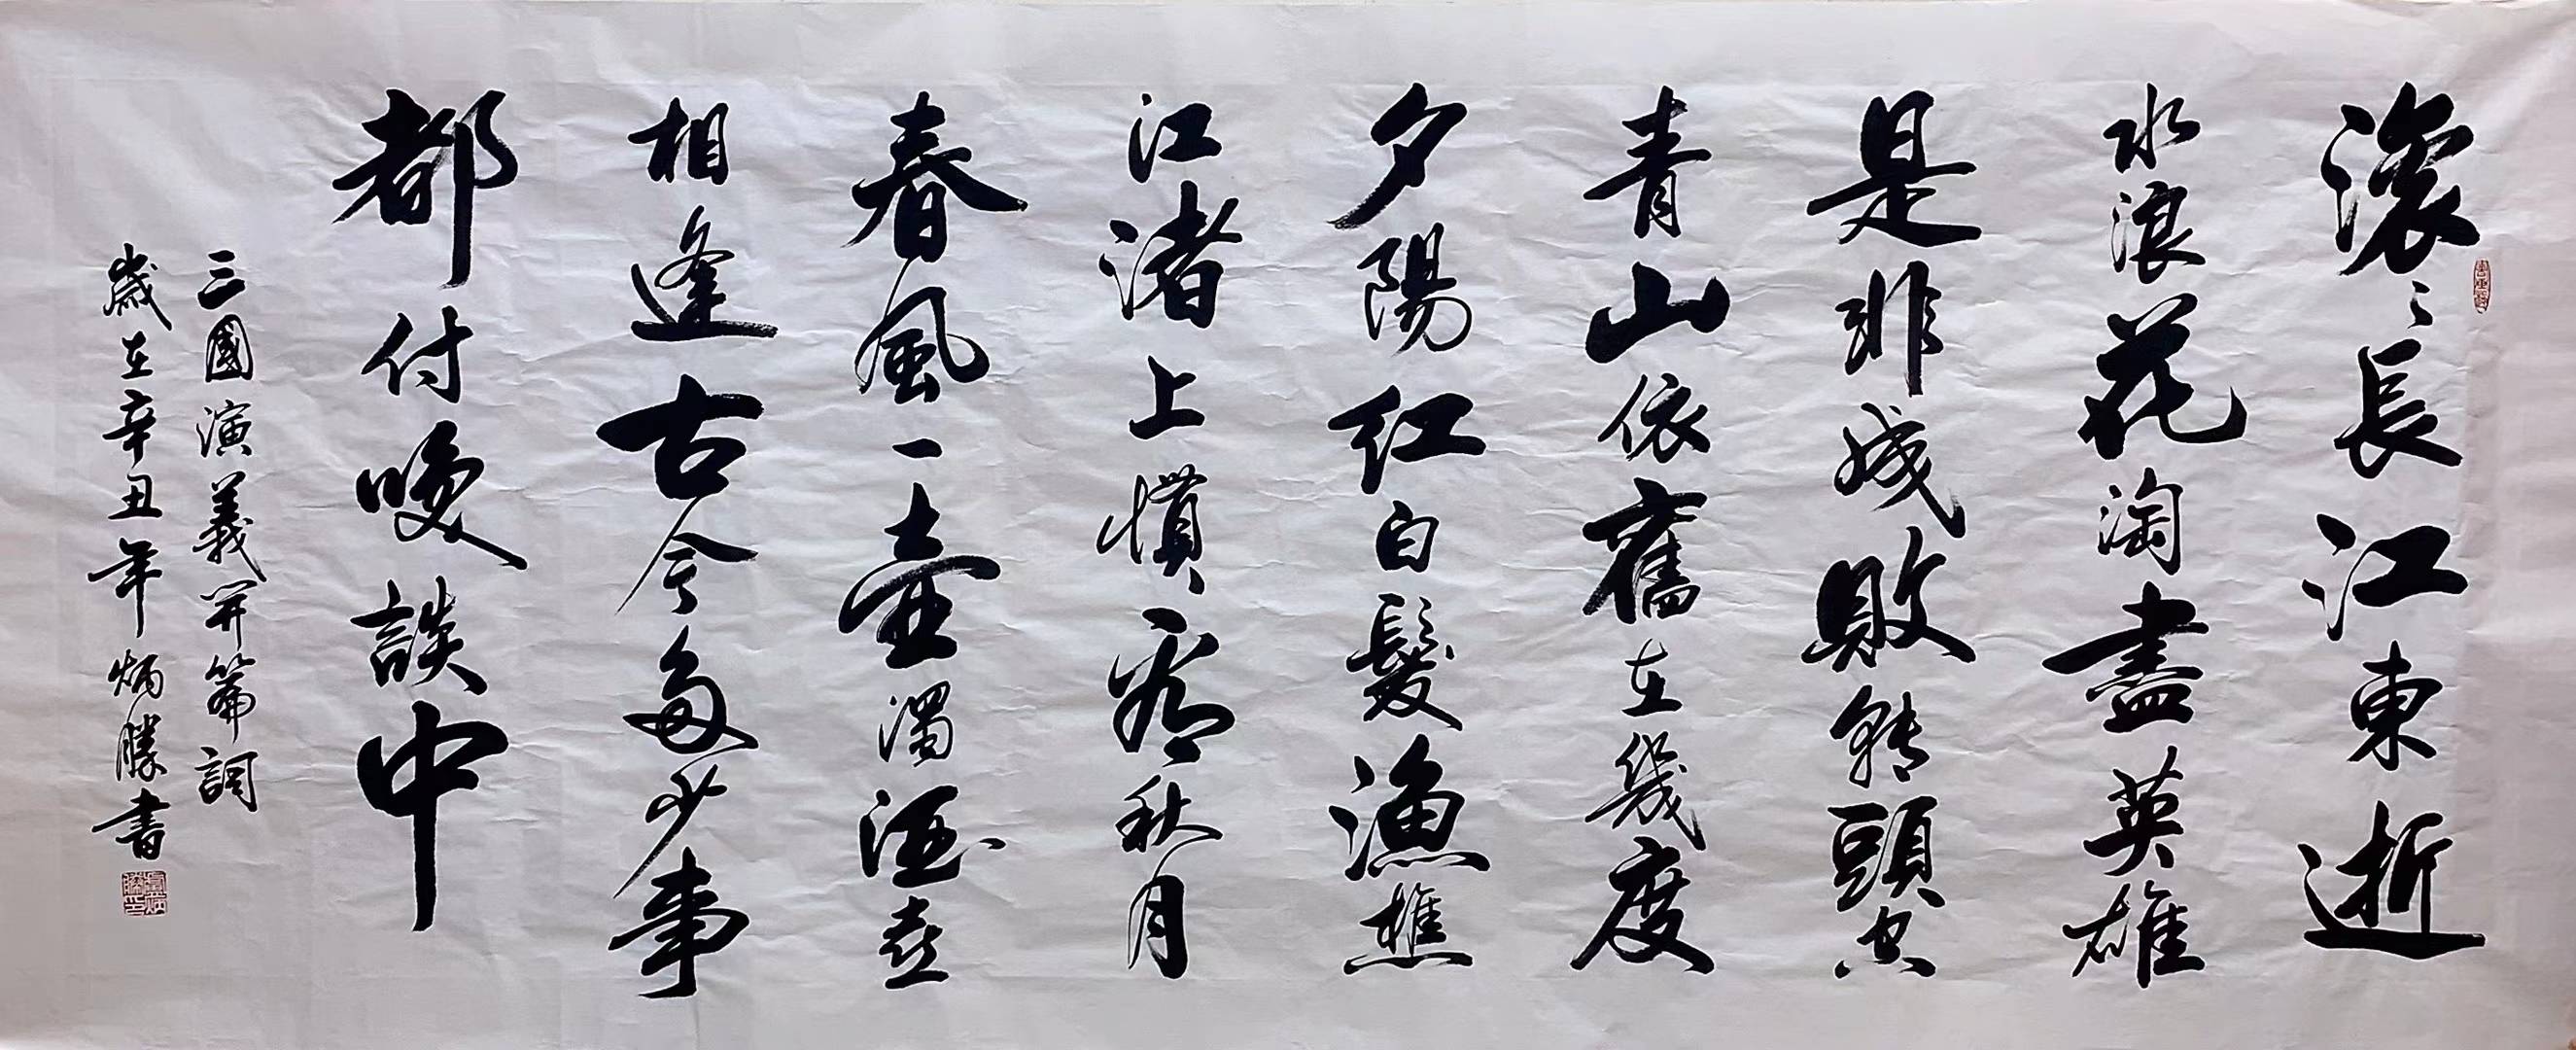 滚〻長江東逝
水浪花淘盡英雄
是非成敗轉頭空
青山依舊在幾度
夕陽紅白髮漁樵
江渚上慣看秋月
春風一壺濁酒喜
相逢古今多少事
都付唤談中
三國演義開篇詞
歲在辛丑年炳勝書